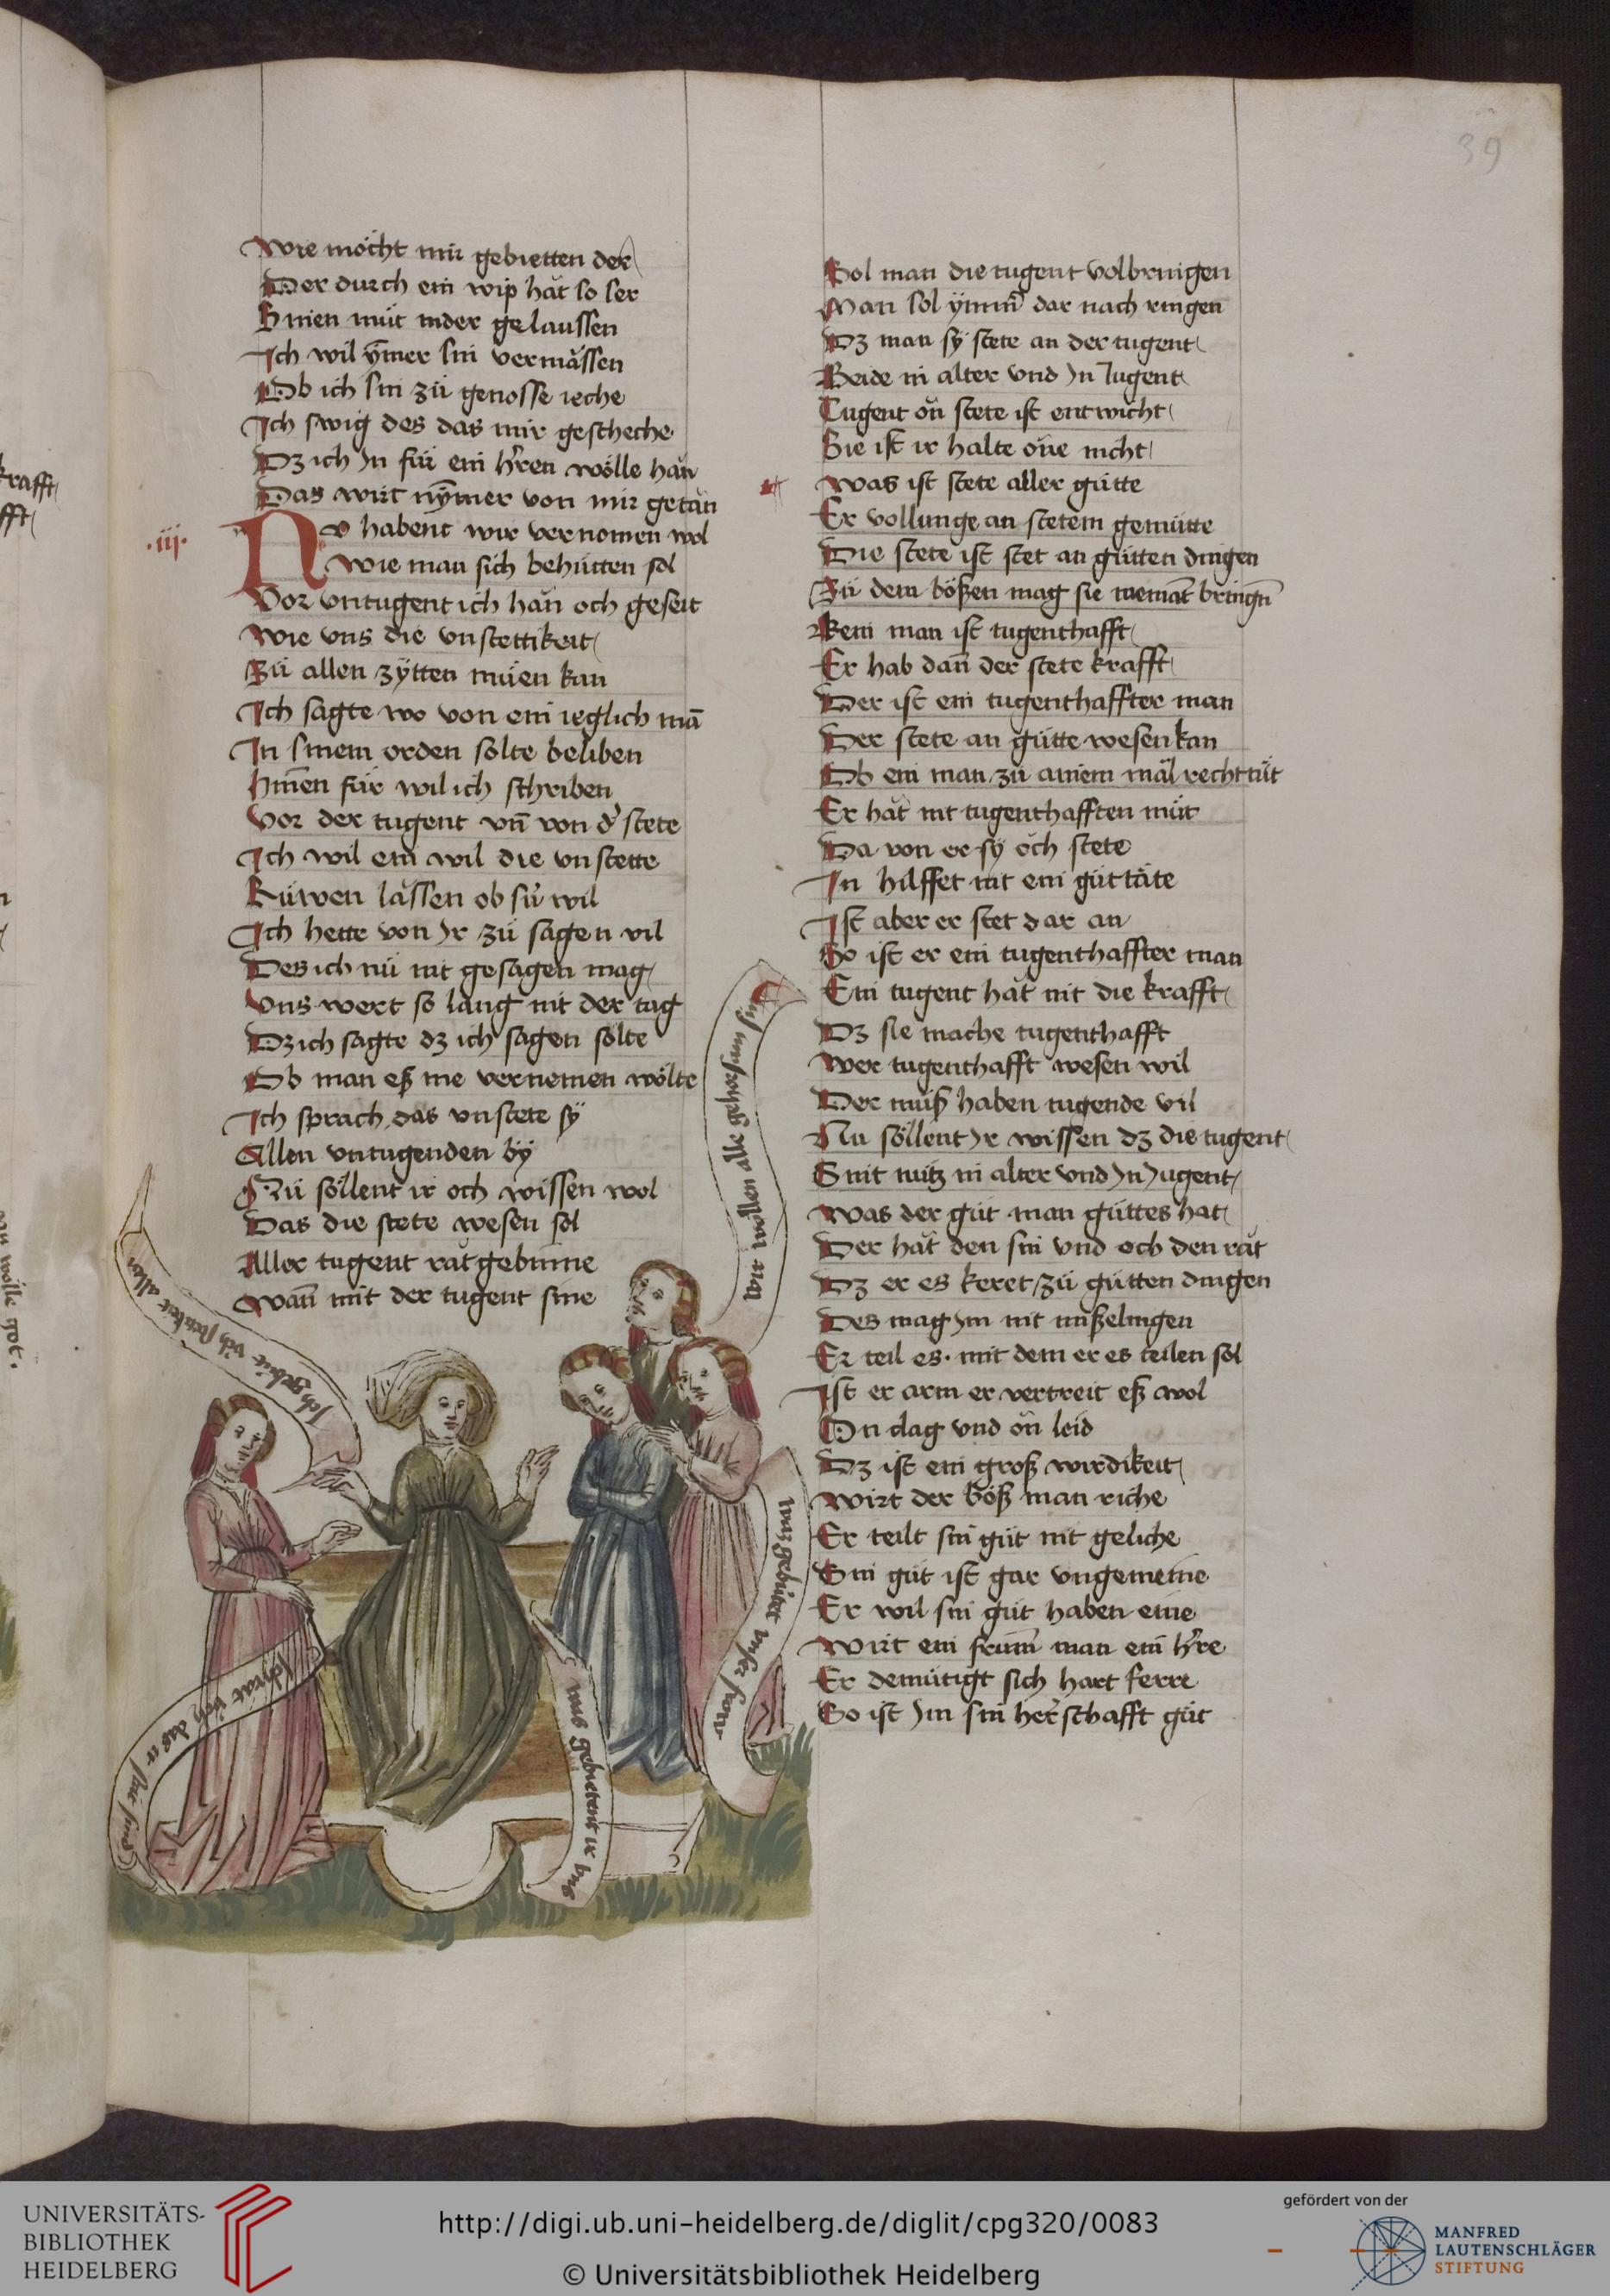 39
Wie möcht mir gebietten der
Der durch ein wip hăt so ser
Sinen můt nider gelaussen
Ich wil ÿmer sin vermăssen
Ob ich sin zů genosse ieche
Ich swig des das mir gescheche
Dz ich In für ein hren wölle hăn
Das wirt nÿmer von mir getăn
.iij.
Nv habent wir vernomen wol
Wie man sich behůtten sol
Vor vntugent ich hăn och geseit
Wie vns die vnstettikeit
Zů allen zÿtten můen kan
Ich sagte wo von ein ieglich mā
In sinem orden solte beliben
Hinnen für wil ich schriben
Vor der tugent vn̄ von d' stete
Ich wil ein wil die vnstette
Růwen lăssen ob sů wil
Ich hette von Ir zů sagen vil
Des ich nů nit gesagen mag
Vns wert so lang nit der tag
Dz ich sagte dz ich sagen sölte
Ob man eß nie vernemen wölte
Ich sprach das vnstete sÿ
Allen vntugenden bÿ
Nů söllent ir och wissen wol
Das die stete wesen sol
Aller tugent rătgebinine
Wan̄ mit der tugent sine
Ich gebüt üch stetikeit allen
Ich rat üch das ir stet sind
was gebietent ir vns
was gebütet vnser frow
wir wöllen alle gehorsam sin
Sol man die tugent volbringen
Man sol ÿmm̄ dar nach ringen
Dz man sÿ stete an der tugent
Beide in alter vnd In Iugent
Tugent ŏn stete ist entwicht
Sie ist ir halte ŏne nicht
Was ist stete aller gůtte
Er vollunge an stetem gemůtte
Die stete ist stet an gůtten dingen
Zů dem bößen mag sie niemāt bringn̄
Kein man ist tugenthafft
Er hab dan̄ der stete krafft
Der ist ein tugenthaffter man
Der stete an gůtte wesen kan
Ob ein man zů ainem măl recht tůt
Er hăt nit tugenthafften můt
Da von er sÿ och stete
In hilffet nit ein gůttăte
Ist aber er stet dar an
So ist er ein tugenthaffter man
Ein tugent hăt nit die krafft
Dz sie mache tugenthafft
Wer tugenthafft wesen wil
Der můß haben tugende vil
Nu söllent Ir wissen dz die tugent
Sint nütz in alter vnd In Iugent
Was der gůt man gůttes hat
Der hăt den sin vnd och den răt
Dz er es keret zů gůtten dingen
Des mag Im nit mißelingen
Er teil es mit dem er es teilen sol
Ist er arm er vertreit eß wol
On clag vnd ŏn leid
Dz ist ein groß wirdikeit
Wirt der böß man riche
Er teilt sin gůt nit geliche
Sin gůt ist gar vngemeine
Er wil sin gůt haben eine
Wirt ein frum̄ man ein h're
Er demůtigt sich hart ferre
So ist Im sin her'schafft gůt
krafft
fft
an wölle got.
UNIVERSITÄTS-
BIBLIOTHEK
HEIDELBERG
http://digi.ub.uni-heidelberg.de/diglit/cpg320/0083
© Universitätsbibliothek Heidelberg
gefördert von der
MANFRED
LAUTENSCHLÄGER
STIFTUNG